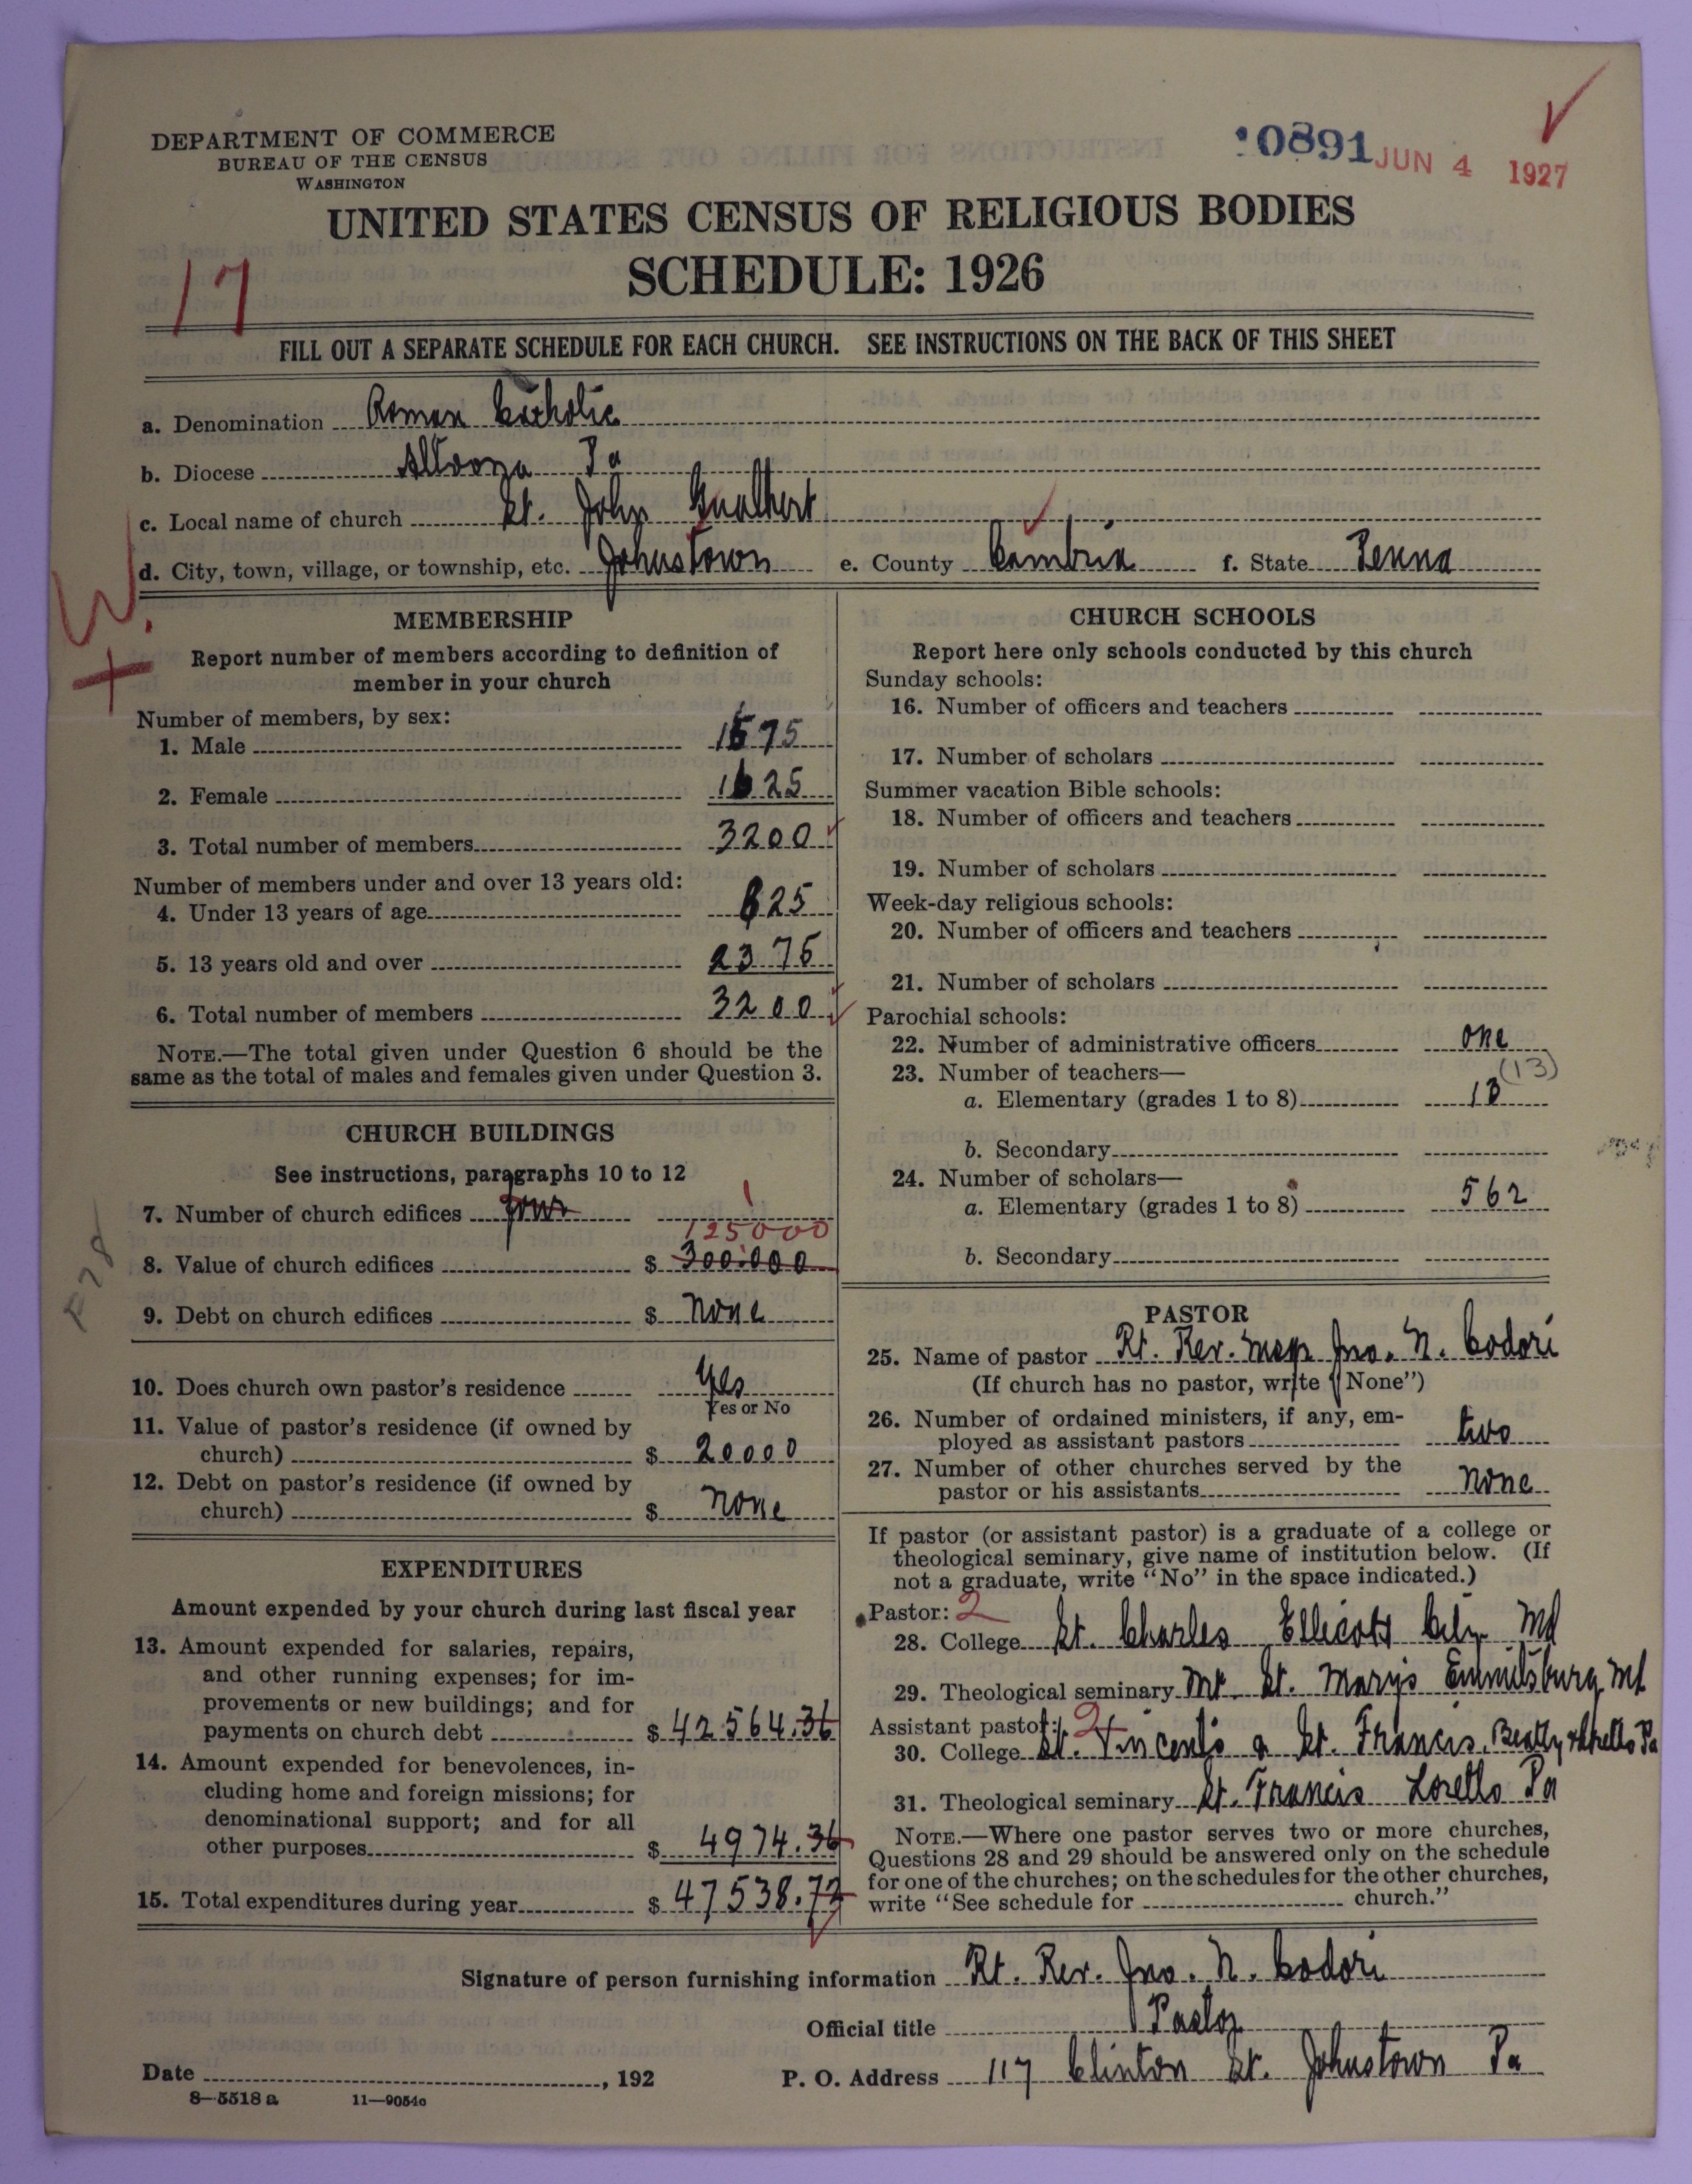 DEPARTMENT OF COMMERCE
BUREAU OF THE CENSUS
WASHINGTON
10891 JUN 4 1927
UNITED STATES CENSUS OF RELIGIOUS BODIES
SCHEDULE: 1926
17
FILL OUT A SEPARATE SCHEDULE FOR EACH CHURCH. SEE INSTRUCTIONS ON THE BACK OF THIS SHEET
a. Denomination Roman Catholic
b. Diocese Altoona Pa
c. Local name of church St. John Gualbert
d. City, town, village, or township, etc. Johnstown e. County Cambria f. State Penna
MEMBERSHIP
Report number of members according to definition of
member in your church
Number of members, by sex:
1. Male 1575
2. Female 1625
3. Total number of members 3200
Number of members under and over 13 years old:
4. Under 13 years of age 825
5. 13 years old and over 2375
6. Total number of members 3200
NOTE.—The total given under Question 6 should be the
same as the total of males and females given under Question 3.
CHURCH BUILDINGS
See instructions, paragraphs 10 to 12
7. Number of church edifices four 1
125000
8. Value of church edifices $ 300.000
9. Debt on church edifices $ none
10. Does church own pastor's residence Yes
Yes or No
11. Value of pastor's residence (if owned by
church) $ 20000
12. Debt on pastor's residence (if owned by
church) $ none
EXPENDITURES
Amount expended by your church during last fiscal year
13. Amount expended for salaries, repairs,
and other running expenses; for im-
provements or new buildings; and for
payments on church debt $ 42564.36
14. Amount expended for benevolences, in-
cluding home and foreign missions; for
denominational support; and for all
other purposes $ 4974.36
15. Total expenditures during year $ 47538.72
CHURCH SCHOOLS
Report here only schools conducted by this church
Sunday schools:
16. Number of officers and teachers
17. Number of scholars
Summer vacation Bible schools:
18. Number of officers and teachers
19. Number of scholars
Week-day religious schools:
20. Number of officers and teachers
21. Number of scholars
Parochial schools:
22. Number of administrative officers one
23. Number of teachers— (13)
a. Elementary (grades 1 to 8) 13
b. Secondary
24. Number of scholars—
a. Elementary (grades 1 to 8) 562
b. Secondary
PASTOR
25. Name of pastor Rt. Rev. Msgr Jno. N. Codori
(If church has no pastor, write "None")
26. Number of ordained ministers, if any, em-
ployed as assistant pastors two
27. Number of other churches served by the
pastor or his assistants none
If pastor (or assistant pastor) is a graduate of a college or
theological seminary, give name of institution below. (If
not a graduate, write "No" in the space indicated.)
Pastor: 2
28. College St. Charles Ellicott City Md
29. Theological seminary Mt. St. Marys Emmitsburg Md
Assistant pastor: 2
30. College St. Vincents & St. Francis, Beatty & Loretto Pa
31. Theological seminary St. Francis Loretto Pa
NOTE.—Where one pastor serves two or more churches,
Questions 28 and 29 should be answered only on the schedule
for one of the churches; on the schedules for the other churches,
write "See schedule for church."
Signature of person furnishing information Rt. Rev. Jno. N. Codori
Official title Pastor
Date , 192 P. O. Address 117 Clinton St. Johnstown Pa
8—5518 a 11—9054c